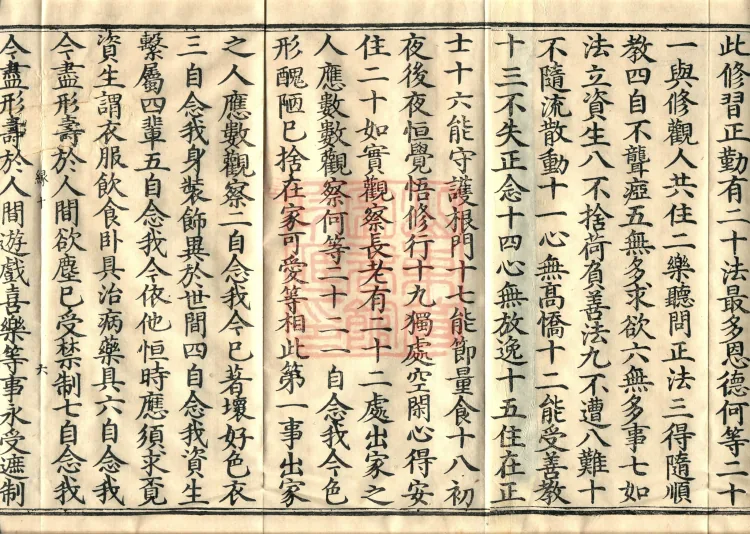 此修習正勤有二十法最多恩德何等二十
一與修觀人共住二樂聽聞正法三得隨順
教四自不聾瘂五無多求欲六無多事七如
法立資生八不捨荷負善法九不遭八難十
不隨流散動十一心無高憍十二能受善教
十三不失正念十四心無放逸十五住在正
士十六能守護根門十七能節量食十八初
夜後夜恒覺悟修行十九獨處空閑心得安
住二十如實觀察長老有二十二處出家之
人應數數觀察何等二十二一自念我今色
形醜陋已捨在家可愛等相此第一事出家
之人應數觀察二自念我今已著壞好色衣
三自念我身裝飾異於世間四自念我資生
繫屬四輩五自念我今依他恒時應須求覓
資生謂衣服飲食卧具治病藥具六自念我
今盡形壽於人間欲塵已受禁制七自念我
緣十
六
今盡形壽於人間遊戲喜樂等事永受遮制